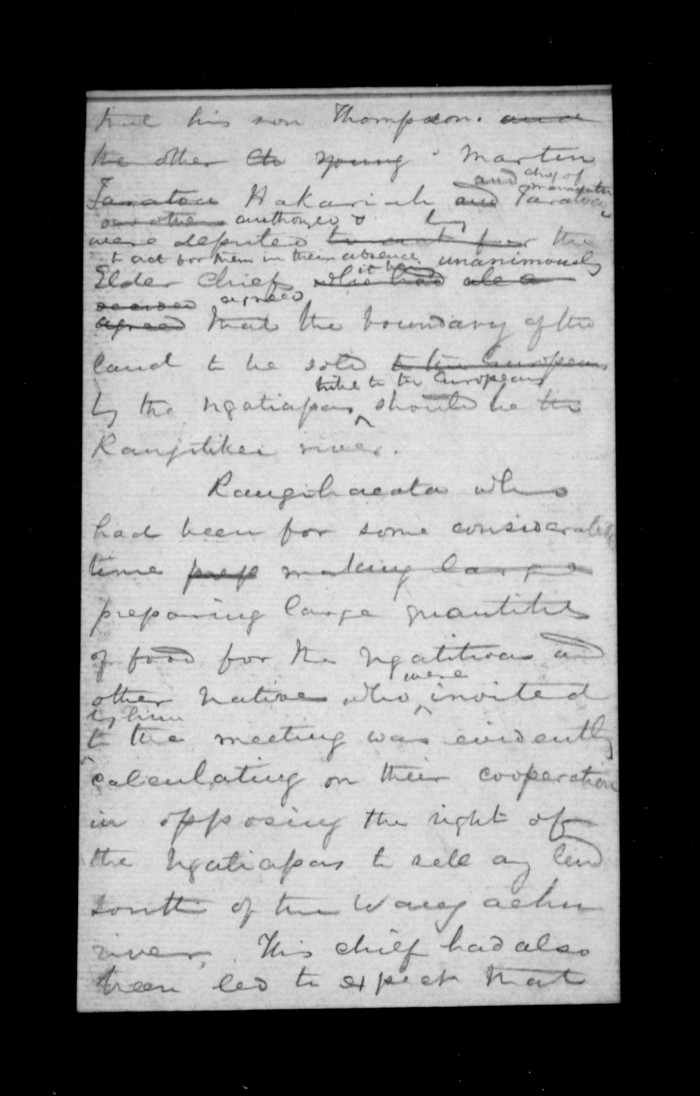 but his son Thompson. and
the other Ch young Martin
and chiefs of Manawatu
Taratoa Hakariah and Taratoa
our other authorized & by
were deputed to the
to act for them in their absence unanimously
Elder Chiefs who had
decided agreed
agreed that the boundary of the
land to be sold to the Europeans
tribe to the Europeans
by the Ngatiapas should be the
Rangitikei river.
Rangihaeata who
had been for some considerable
time prep making large
preparing large quantities
of food for the Ngatitoas and
were
other natives who invited
by him
to the meeting was evidently
calculating on their cooperation
in opposing the right of
the Ngatiapas to sell any land
south of the Wangaehu
river. This chief had also
been led to expect that